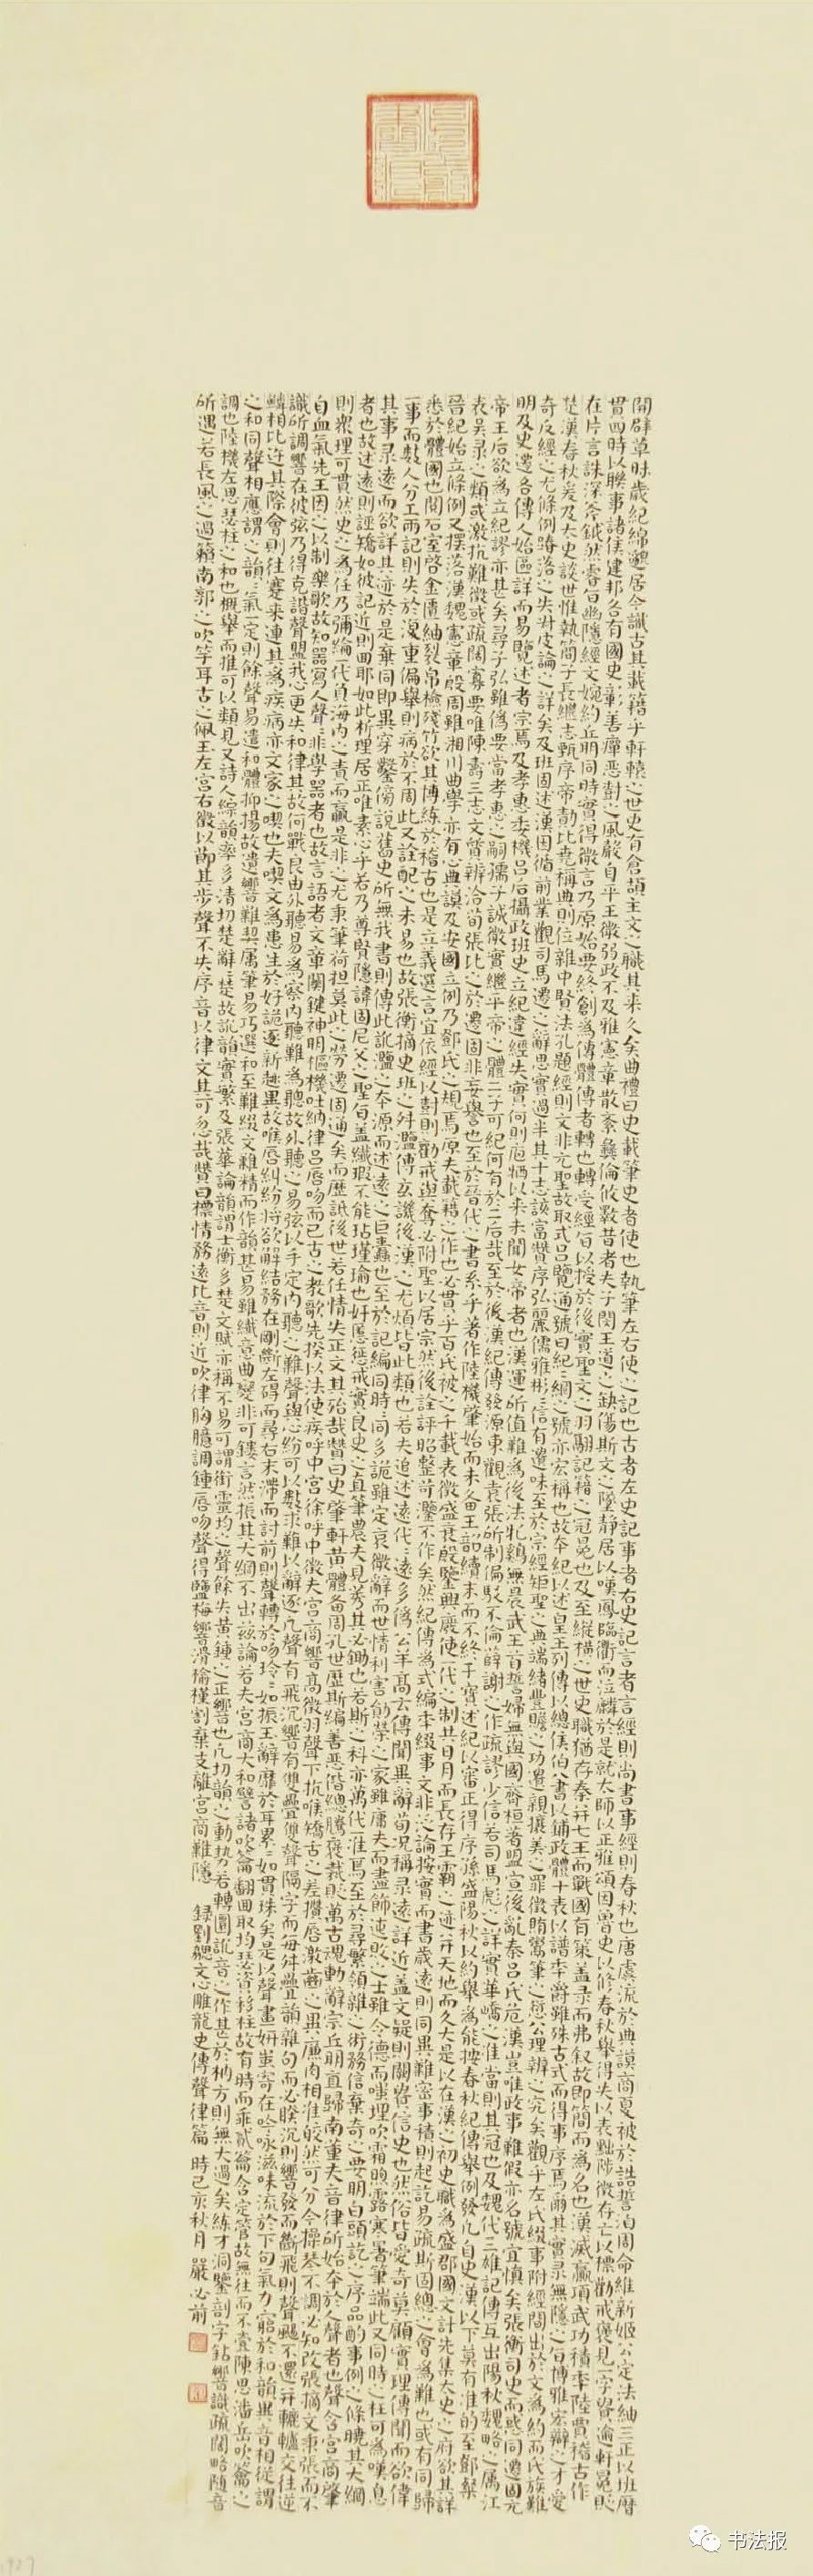 開辟草昧歲紀綿邈居今識古其載籍乎軒轅之世史有倉頡主文之職其来久矣曲禮曰史載筆史者使也執筆左右使之記也古者左史記事者右史記言者言經則尚書事經則春秋也唐虞流於典謨商夏被於誥誓洎周命維新姬公定法紬三正以班曆
貫四時以聯事諸侯建邦各有國史彰善癉惡樹之風嚴自平王微弱政不及雅憲章散紊彝倫攸斁昔者夫子閔王道之缺傷斯文之墜静居以嘆鳳臨衢而泣麟於是就大師以正雅頌因魯史以修春秋舉得失以表黜陟徵存亡以標勸戒褒見一字貴逾軒冕貶
在片言誅深斧鉞然睿旨幽隱經文婉約丘明同時實得微言乃原始要終創為傳體傳者轉也轉受經旨以授於後實聖文之羽翮記籍之冠冕也及至縱橫之世史職猶存秦并七王而戰國有策盖录而弗叙故即簡而為名也漢滅嬴項武功積年陸賈稽古作
楚漢春秋爰及大史談世惟執簡子長繼志甄序帝勣比堯稱典則位雜中賢法孔題經則文非元聖故取式呂覽通號曰紀紀綱之號亦宏稱也故本紀以述皇王列傳以總侯伯八書以鋪政體十表以譜年爵雖殊古式而得事序焉爾其實录無隱之旨博雅宏辯之才愛
奇反經之尤條例踳落之失叔皮論之詳矣及班固述漢因循前業觀司馬遷之辭思實過半其十志該富贊序弘麗儒雅彬彬信有遺味至於宗經矩聖之典端緒豐贍之功遺親攘美之罪徵賄鬻筆之愆公理辨之究矣觀乎左氏綴事附經間出於文為約而氏族難
明及史遷各傳人始區詳而易覽述者宗焉及孝惠委機呂后攝政班史立紀違經失實何則庖犧以来未聞女帝者也漢運所值難為後法牝鷄無晨武王首誓婦無與國齊桓著盟宣後亂秦呂氏危漢豈唯政事難假亦名號宜慎矣張衡司史而惑同遷固元
帝王后欲為立紀謬亦甚矣尋子弘雖偽要當孝惠之嗣孺子誠微實繼平帝之體二子可紀何有於二后哉至於後漢紀傳發源東觀袁張所制偏駁不倫薛謝之作疏謬少信若司馬彪之詳實華嶠之准當則其冠也及魏代三雄記傳互出陽秋魏略之屬江
表吴录之類或激抗難徵或疏闊寡要唯陳壽三志文質辨洽荀張比之於遷固非妄譽也至於晉代之書系乎著作陸機肇始而未备王韶續末而不終干寶述紀以審正得序孫盛陽秋以約舉為能按春秋紀傳舉例發凡自史漢以下莫有准的至鄧粲
晉紀始立條例又擺落漢魏憲章殷周雖湘川曲學亦有心典謨及安國立例乃鄧氏之規焉原夫載籍之作也必貫乎百氏被之千載表徵盛衰殷鑒興廢使一代之制共日月而長存王霸之迹并天地而久大是以在漢之初史職為盛郡國文計先集大史之府欲其詳
悉於體國也閱石室啓金匱紬裂帛檢殘竹欲其博練於稽古也是立義選言宜依經以樹則勸戒與奪必附聖以居宗然後詮評昭整苛濫不作矣然紀傳為式編年綴事文非泛論按實而書歲遠則同異難密事積則起訖易疏斯固總之會為難也或有同歸
一事而數人分工兩記則失於復重偏舉則病於不周此又詮配之未易也故張衡摘史班之舛濫傅玄譏後漢之尤煩皆此類也若夫追述遠代代遠多偽公羊高云傳聞異辭荀況稱录遠詳近盖文疑則闕貴信史也然俗皆愛奇莫顧實理傳聞而欲偉
其事录遠而欲詳其迹於是棄同即異穿鑿傍說舊史所無我書則傳此訛濫之本源而述遠之巨蠹也至於記編同時時同多詭雖定哀微辭而世情利害勛榮之家雖庸夫而盡飾迍敗之士雖令德而嗤埋吹霜煦露寒暑筆端此又同時之枉可為嘆息
者也故述遠則誣矯如彼記近則回邪如此析理居正唯素心乎若乃尊賢隱諱固尼父之聖旨盖纖瑕不能玷瑾瑜也奸慝懲戒實良史之直筆農夫見莠其必鋤也若斯之科亦萬代一准焉至於尋繁領雜之術務信棄奇之要明白頭訖之序品酌事例之條曉其大綱
則衆理可貫然史之為任乃彌綸一代負海内之責而贏是非之尤秉筆荷担莫此之勞遷固通矣而歷詆後世若任情失正文其殆哉贊曰史肇軒黄體备周孔世歷斯編善惡偕總騰褒裁貶萬古魂動辭宗丘明直歸南董夫音律所始本於人聲者也聲含宮商肇
自血氣先王因之以制樂歌故知器寫人聲聲非學器者也故言語者文章關鍵神明樞機吐納律呂唇吻而已古之教歌先揆以法使疾呼中宮徐呼中徵夫宮商響高徵羽聲下抗喉矯舌之差攢唇激齒之異廉肉相准皎然可分今操琴不調必知改張摘文乖張而不
識所調響在彼弦乃得克諧聲萌我心更失和律其故何哉良由外聽易為察内聽難為聰故外聽之易弦以手定内聽之難聲與心紛可以數求難以辭逐凡聲有飛沉響有雙疊雙聲隔字而每舛疊韻雜句而必睽沉則響發而斷飛則聲颺不還并轆轤交往逆
鱗相比迕其際會則往蹇来連其為疾病亦文家之喫也夫喫文為患生於好詭逐新趣異故喉唇糾紛將欲解結務在剛斷左碍而尋右末滯而討前則聲轉於吻玲玲如振玉辭靡於耳累累如貫珠矣是以聲畫妍蚩寄在吟咏滋味流於下句氣力窮於和韻異音相從謂
之和同聲相應謂之韻韻氣一定則餘聲易遣和體抑揚故遺響難契属筆易巧選和至難綴文難精而作韻甚易雖纖意曲變非可鏤言然振其大綱不出兹論若夫宮商大和譬諸吹籥翻回取均瑟資移柱故有時而乖貳籥含定管故無往而不壹陳思潘岳吹籥之
調也陸機左思瑟柱之和也概舉而推可以類見又詩人綜韻率多清切楚辭辭楚故訛韻實繁及張華論韻謂士衡多楚文賦亦稱不易可謂銜靈均之聲餘失黄鍾之正響也凡切韻之動势若轉圜訛音之作甚於枘方則無大過矣練才洞鑒剖字鉆響識疏闊略随音
所遇若長風之過籟南郭之吹竽耳古之佩玉左宮右徵以節其步聲不失序音以律文其可忽哉贊曰標情務遠比音則近吹律胸臆調鍾唇吻聲得鹽梅響滑榆槿割棄支離宮商難隱 録劉勰文心雕龍史傳聲律篇 時己亥秋月 嚴必前
书法报